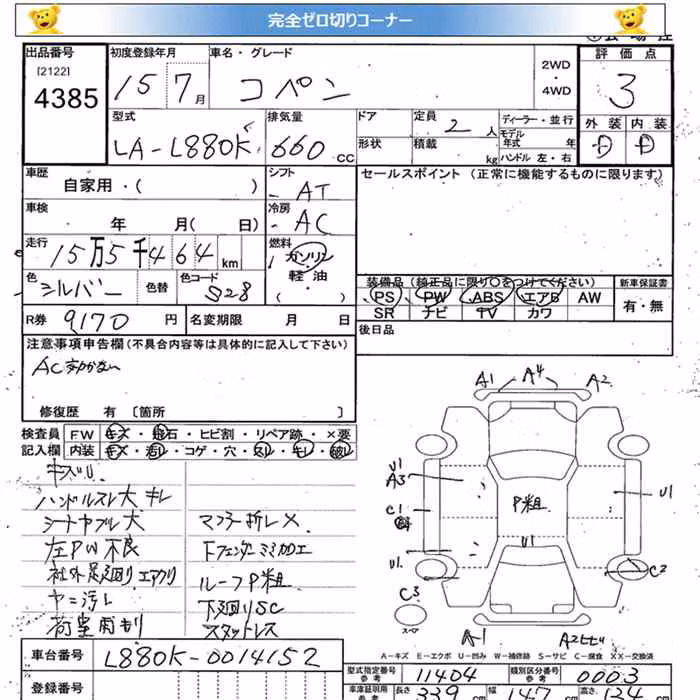 完全ゼロ切りコーナー
出品番号
[2122]
4385
初度登録年月
15 7月
車名・グレード
コペン
2WD
・
4WD
評価点
3
外装 内装
D D
型式
LA-L880K
排気量
660 CC
ドア
形状
定員
2 人
積載
kg
ディーラー・並行
モデル
年式 年
ハンドル 左・右
車歴
自家用・( )
シフト
AT
セールスポイント (正常に機能するものに限ります)
車検
年 月( 日)
冷房
AC
走行
15万5千464 km
燃料
ガソリン
軽油
( )
色
シルバー
色替
色コード
S28
装備品 (純正品に限り○をつけてください)
PS PW ABS エアB AW
SR ナビ TV カワ
新車保証書
有・無
R券
9170 円
名変期限 月 日
後日品
注意事項申告欄(不具合内容等は具体的に記入して下さい)
AC効かない
修復歴 有 〔箇所 〕
検査員
記入欄
FW キズ・飛石・ヒビ割・リペア跡・×要
内装 キズ・汚レ・コゲ・穴・スレ・キレ・破レ
キズUL
ハンドルスレ大 キレ
シートヤブレ大
左PW不良
社外足廻り エアクリ
ヤニ汚レ
マフラー折レ×
下フェンダーミミ加工
ルーフP粗
下廻りSC
スタットレス
A1 A4 A2
U1
A3
C1
P粗
U1
U1
U1
C2
C3
スペア
A1
A2ヒビ
A-キズ E-エクボ U-凹み W-補修跡 S-サビ C-腐食 XX-交換済
車台番号
L880K-0014152
型式指定番号
参考
11404
類別区分番号
参考
0003
登録番号
車庫証明用
参考
長さ 339 cm
幅 147 cm
高さ 124 cm